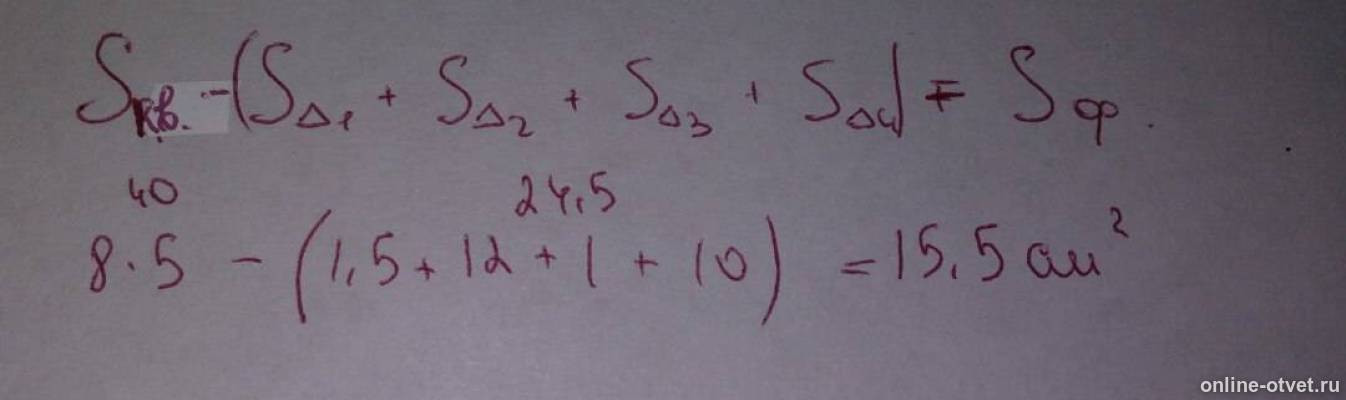 Sкв. - (S∆1 + S∆2 + S∆3 + S∆4) = Sф.
40 24,5
8·5 - (1,5 + 12 + 1 + 10) = 15,5 см²
online-otvet.ru